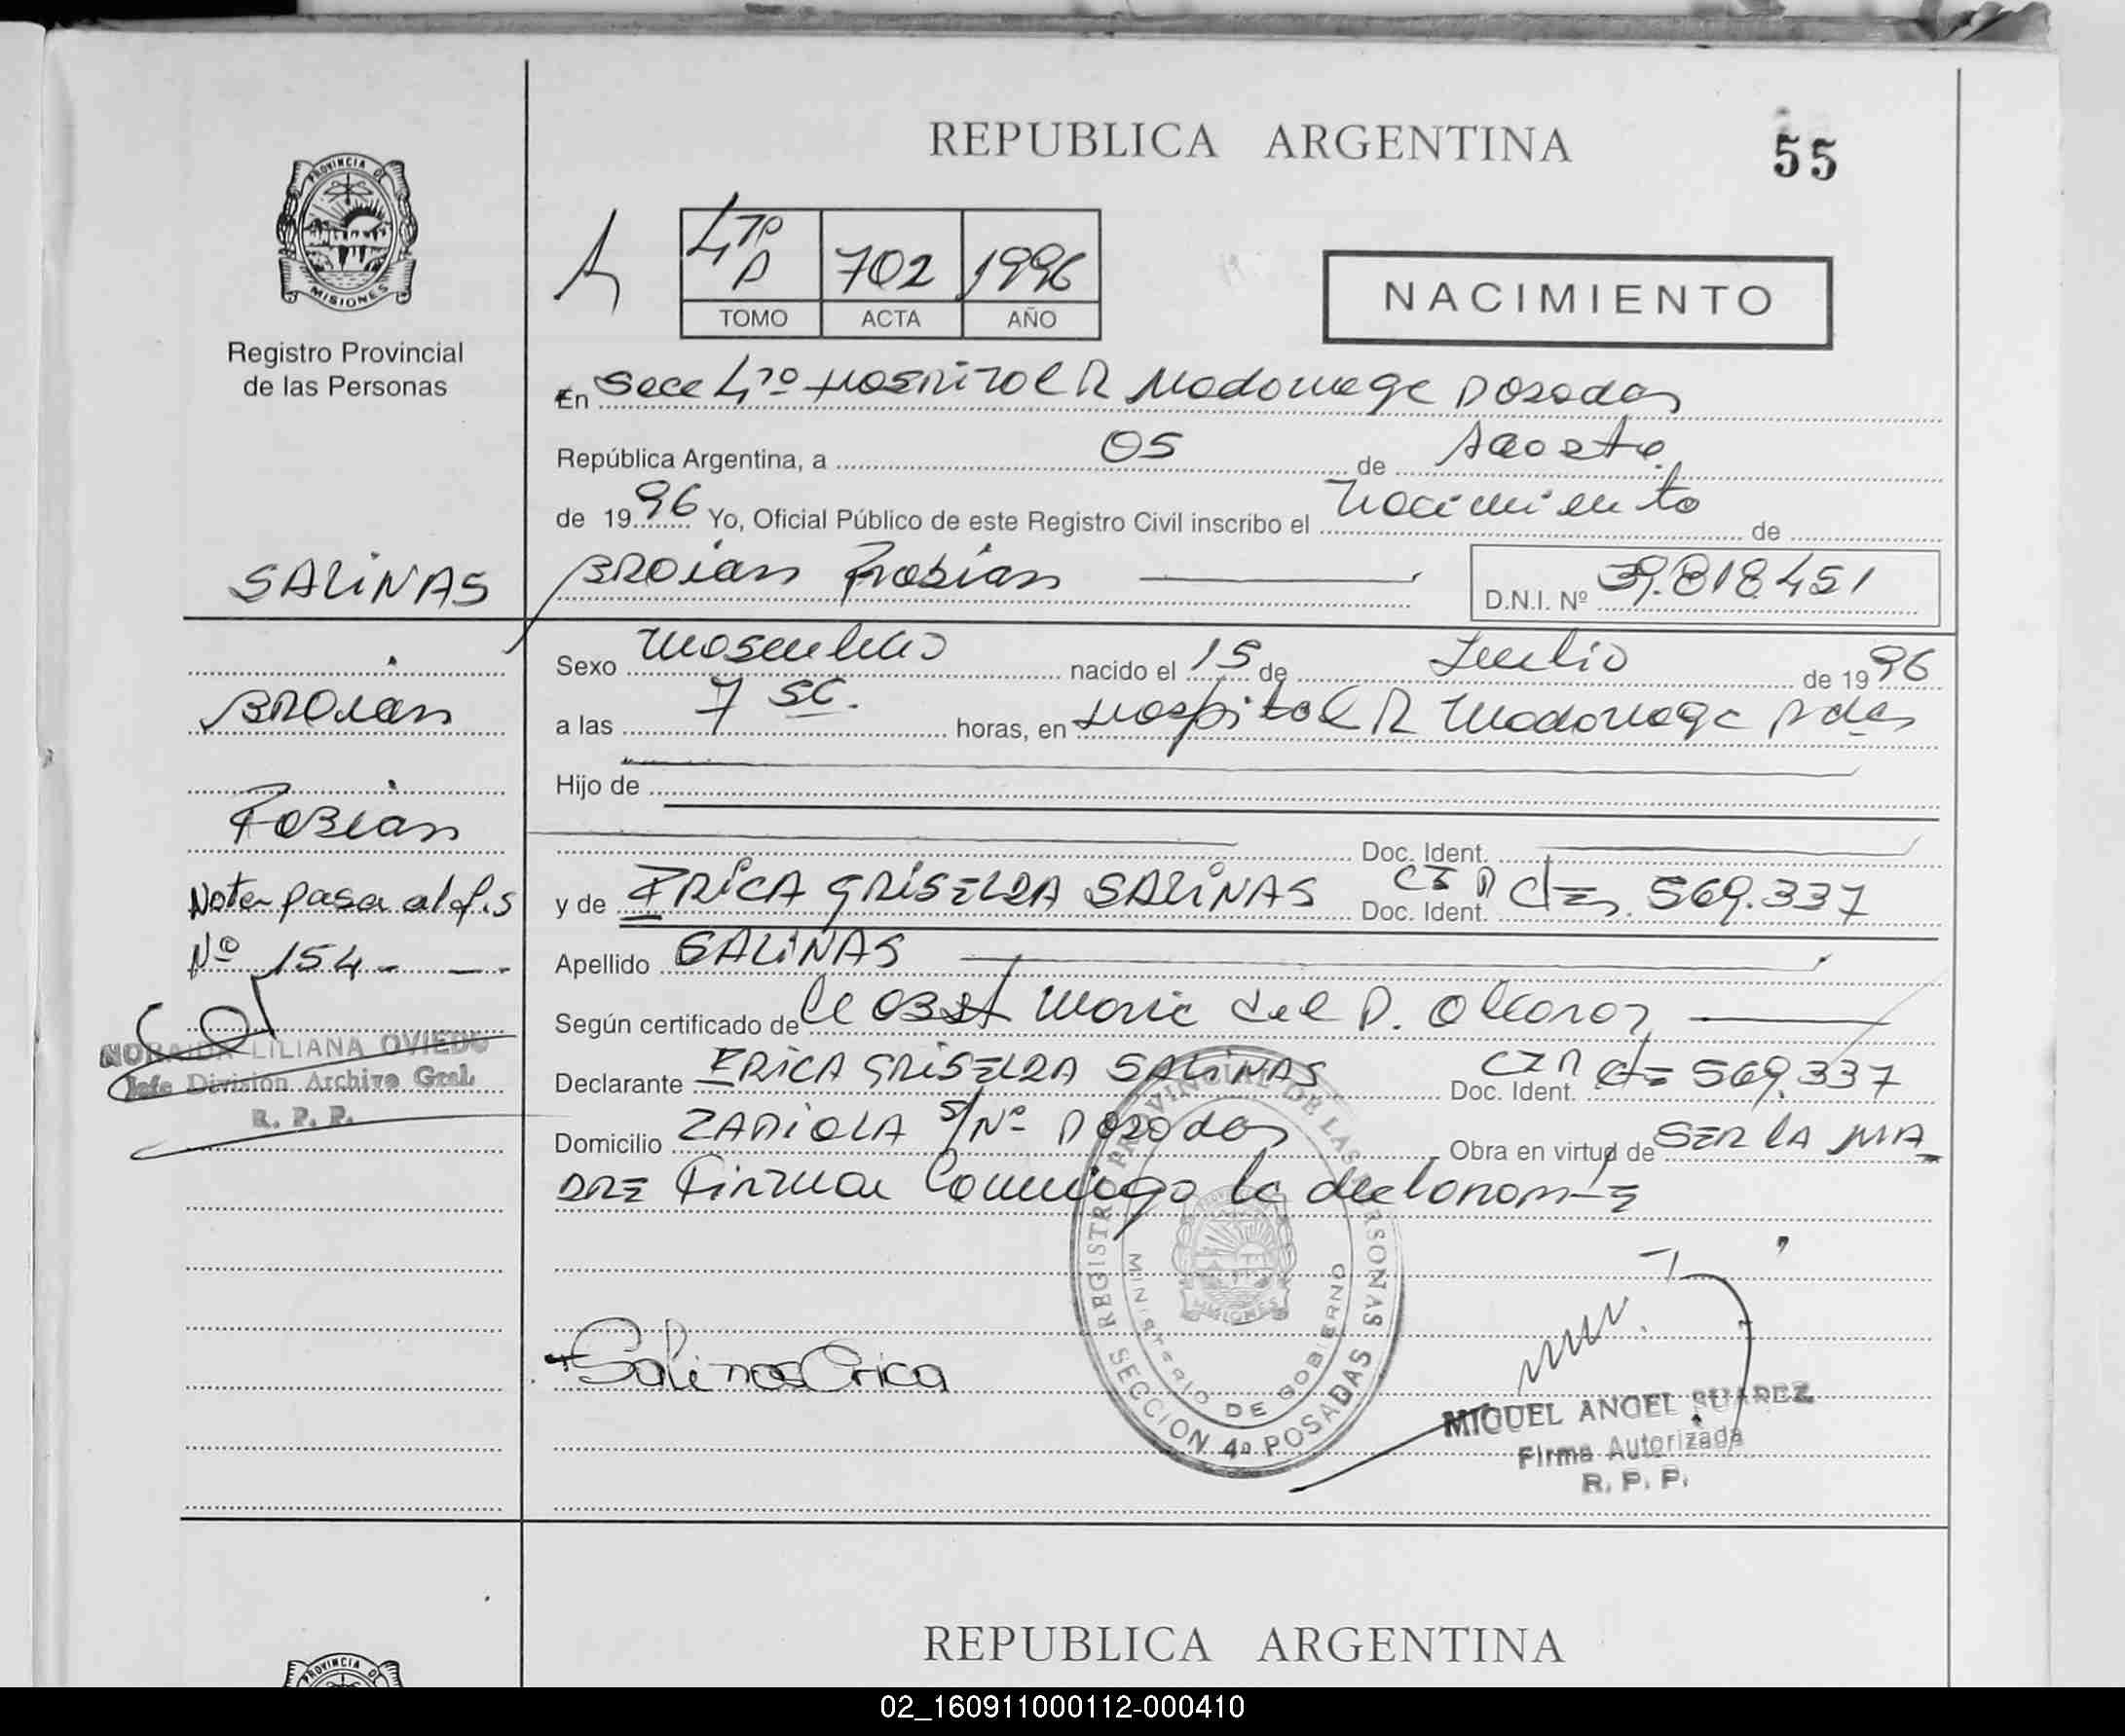 REPUBLICA ARGENTINA
55
PROVINCIA DE
MISIONES
Registro Provincial
de las Personas
4to P 702 1996
TOMO ACTA AÑO
NACIMIENTO
En Secc 4to Hospital R Madariaga Posadas
República Argentina, a 05 de Agosto
de 1996 Yo, Oficial Público de este Registro Civil inscribo el Nacimiento de
SALINAS
Braian Fabian D.N.I. Nº 39.818451
Sexo Masculino nacido el 15 de Julio de 1996
Braian
a las 7 horas, en Hospital R Madariaga Pdas
Hijo de
Fabian
Doc. Ident.
Nota pasa al f.s
y de ERICA GRISELDA SALINAS Doc. Ident. 569.337
Nº 154 -
Apellido SALINAS
Según certificado de la Obst Maria del
NORAIDA LILIANA OVIEDO
Jefe División Archivo Gral.
R. P. P.
Declarante ERICA GRISELDA SALINAS Doc. Ident. 569.337
Domicilio S/Nº Posadas Obra en virtud de SER LA MA
DRE Firman Conmigo la declarante
REGISTRO PROVINCIAL DE LAS PERSONAS
MINISTERIO DE GOBIERNO
MISIONES
SECCION 4a POSADAS
Salinas Erica
MIGUEL ANGEL SUAREZ
Firma Autorizada
R. P. P.
REPUBLICA ARGENTINA
PROVINCIA DE
02_160911000112-000410